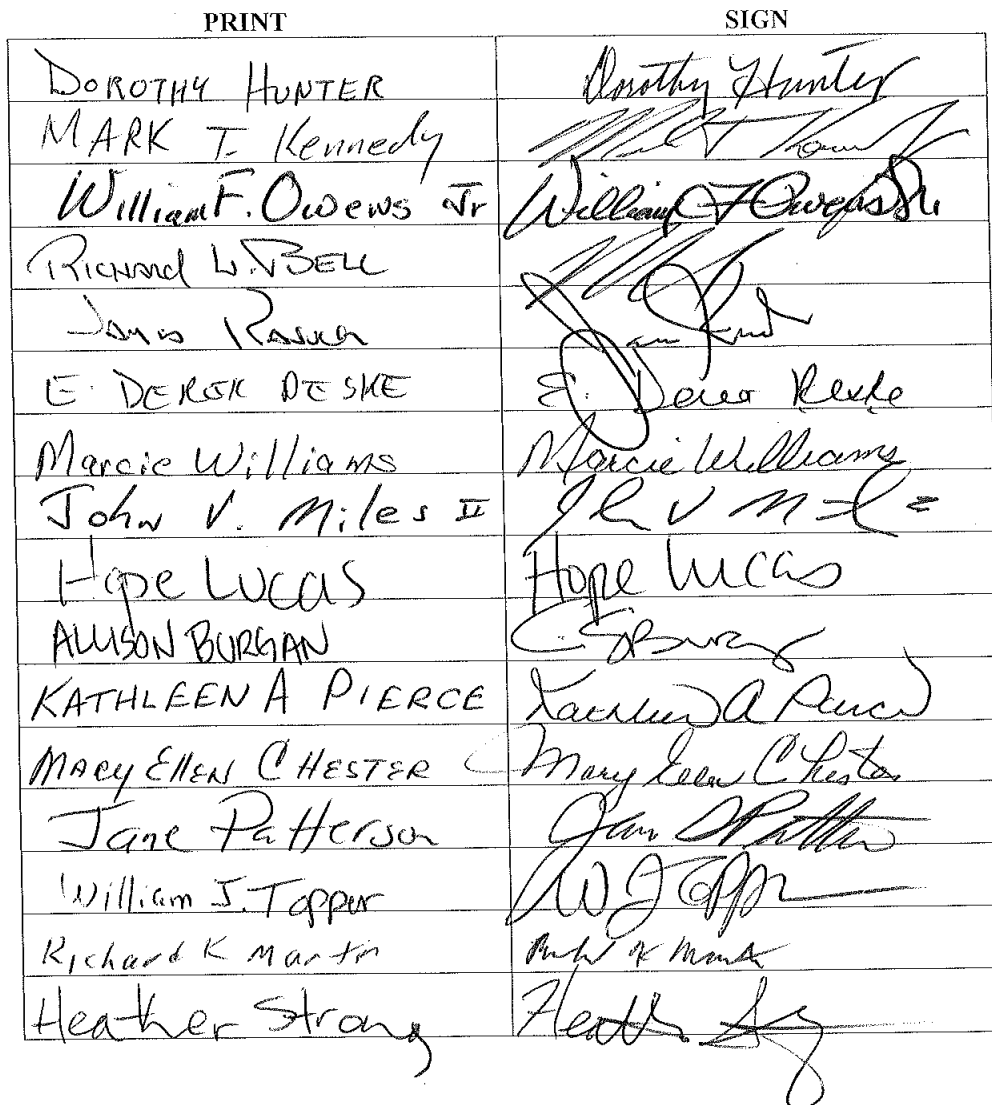 PRINT SIGN
DOROTHY HUNTER Dorothy Hunter
MARK T. Kennedy
William F. Owens Jr William F Owens Jr.
RICHARD W. BELL
James
E. DEREK DESKE E. Derek Deske
Marcie Williams Marcie Williams
John V. Miles II
Hope Lucas Hope Lucas
ALLISON BURGAN
KATHLEEN A PIERCE Kathleen A Pierce
MARY ELLEN CHESTER Mary Ellen Chester
Jane Patterson
William J. Topper W J Topper
Richard K Martin
Heather Strong Heather